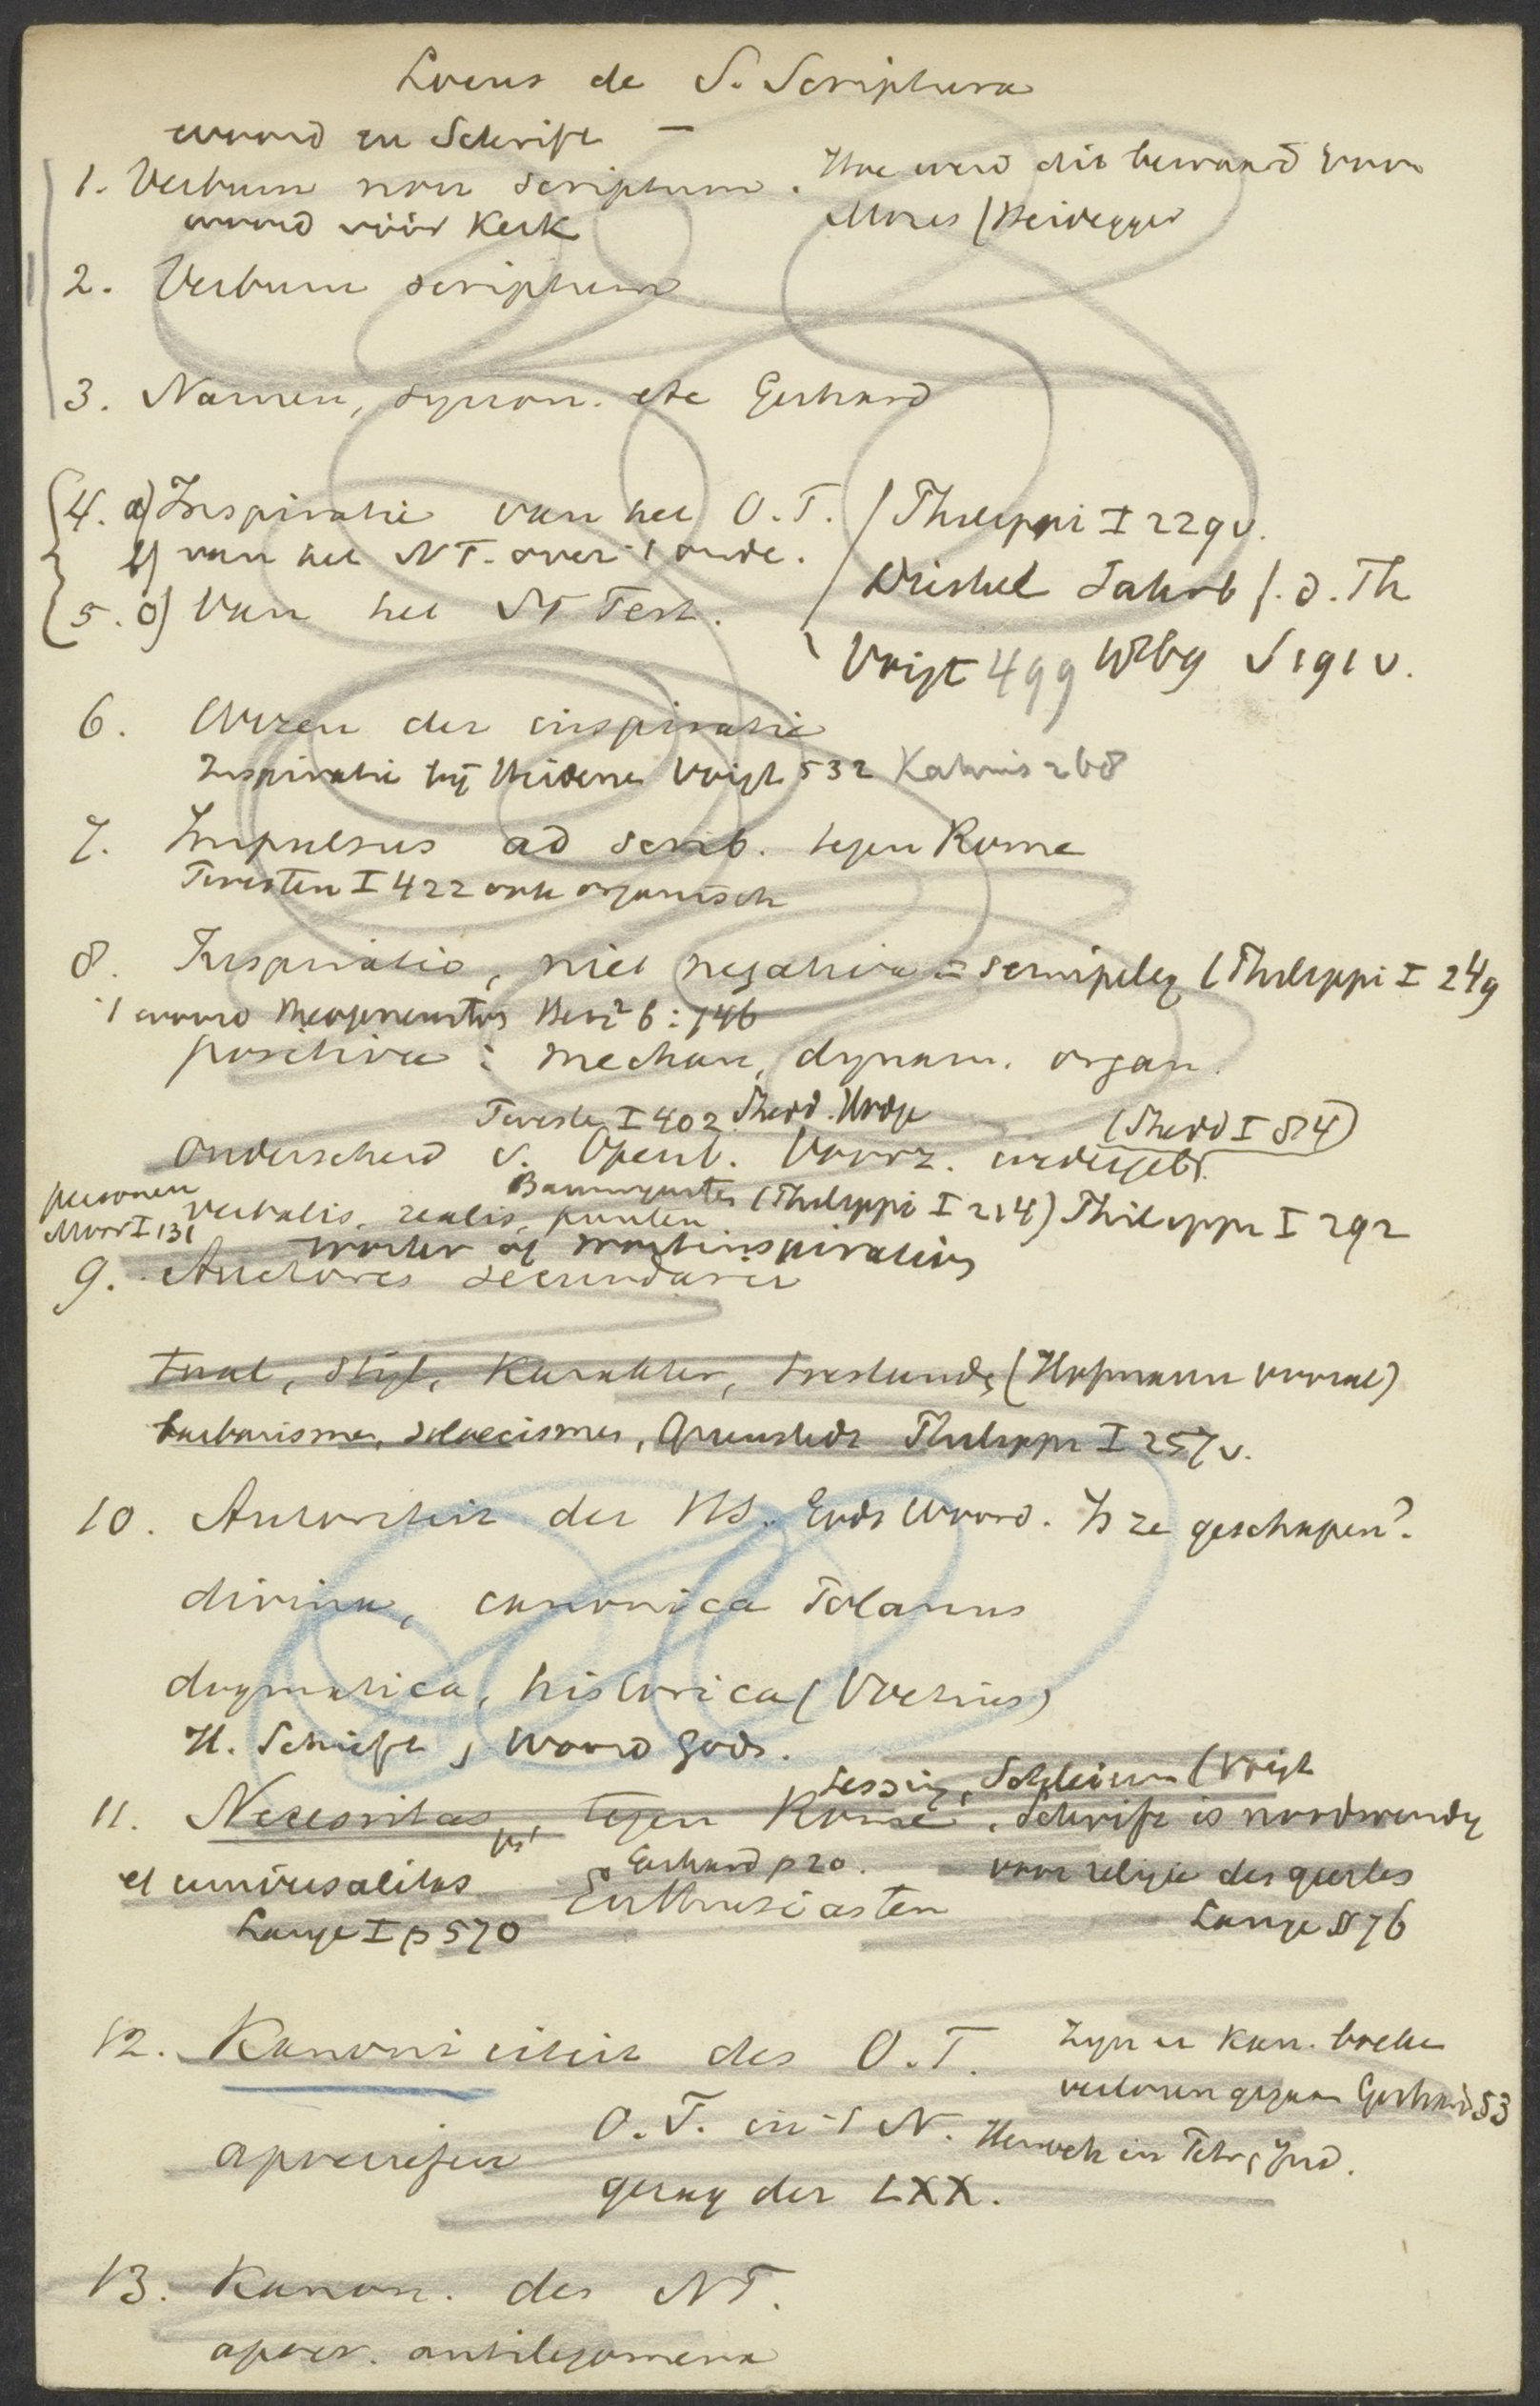 Locus de S. Scriptura
woord en Schrift —
1. Verbum non scriptum. Hoe werd dit bewaard voor
woord vóór Kerk Mozes / Heidegger
2. Verbum scriptum
3. Namen, synon. etc Gerhard
4. a) Inspiratie van het O.T. / Philippi I 229 v.
b) van het N T. over 't oude.
5. a) Van het N Test. Jahrb f. d. Th
Voigt 499 191 v.
6. Wezen der inspiratie
Inspiratie bij Heidenen Voigt 532 Kahnis 268
7. Impulsus ad scrib. tegen Rome
Twesten I 422 ook organisch
8. Inspiratio, niet negativa = (Philippi I 249
't woord Theopneustos 6: 746
positiva: mechan, dynam. organ.
Twesten I 402 Shedd. Hodge (Shedd I 84)
Onderscheid v. Openb. wedergeb.
personen Baumgarten (Philippi I 214) Philippi I 292
verbalis, realis, punten
Moor I 131
woorden of woordinspiration
9. Auctores secundarii
taal, stijl, karakter, toestand, (Hofmann vooral)
barbarismen, soloecismen, Quenstedt Philippi I 257 v.
10. Autoriteit der HS. Gods Woord. Is ze geschapen?
divina, canonica Polanus
dogmatica, historica (Voetius)
H. Schrift, Woord Gods.
Lessing, Schleierm (Voigt
11. Necessitas, tegen Rome. Schrift is noodwendig
et universalitas Gerhard p 20. voor religie des geestes
Enthusiasten
Lange I p 570 Lange § 76
12. Kanoniciteit des O.T. Zijn er kan. boeken
verloren gegaan Gerhard 53
apocriefen O.T. in 't N. Henoch in
gezag der LXX.
13. Kanon. des NT.
apocr. antilegomena